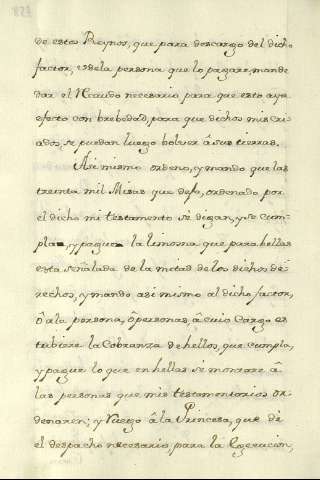 de estos Reynos, que para descargo del dicho
factor, es de la persona que lo pagare, mande
dar el Recaudo necesario para que esto aya
efecto con brebedad, para que dichos mis cri-
ados, se puedan luego bolver â sus tierras.
Asi mismo ordeno, y mando que las
treinta mil Misas que dejo, ordenado por
el dicho mi testamento se digan, y se cum-
plan, y pague la limosna que para hellas
esta señalada de la mitad de los dichos de-
rechos, y mando asi mismo al dicho factor,
ô a la persona, ô personas, â cuio Cargo es
tubiere la Cobranza de hellos, que cumpla,
y pague lo que en hellas se montare â
las personas que mis testamentarios or-
denaren; y Ruego â la Princesa, que dê
el despacho necesario para la Egecucion,